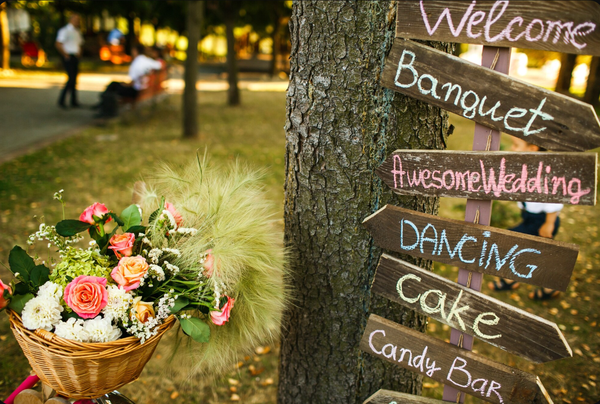 Welcome
Banquet
AwesomeWedding
DANCING
Cake
Candy Bar